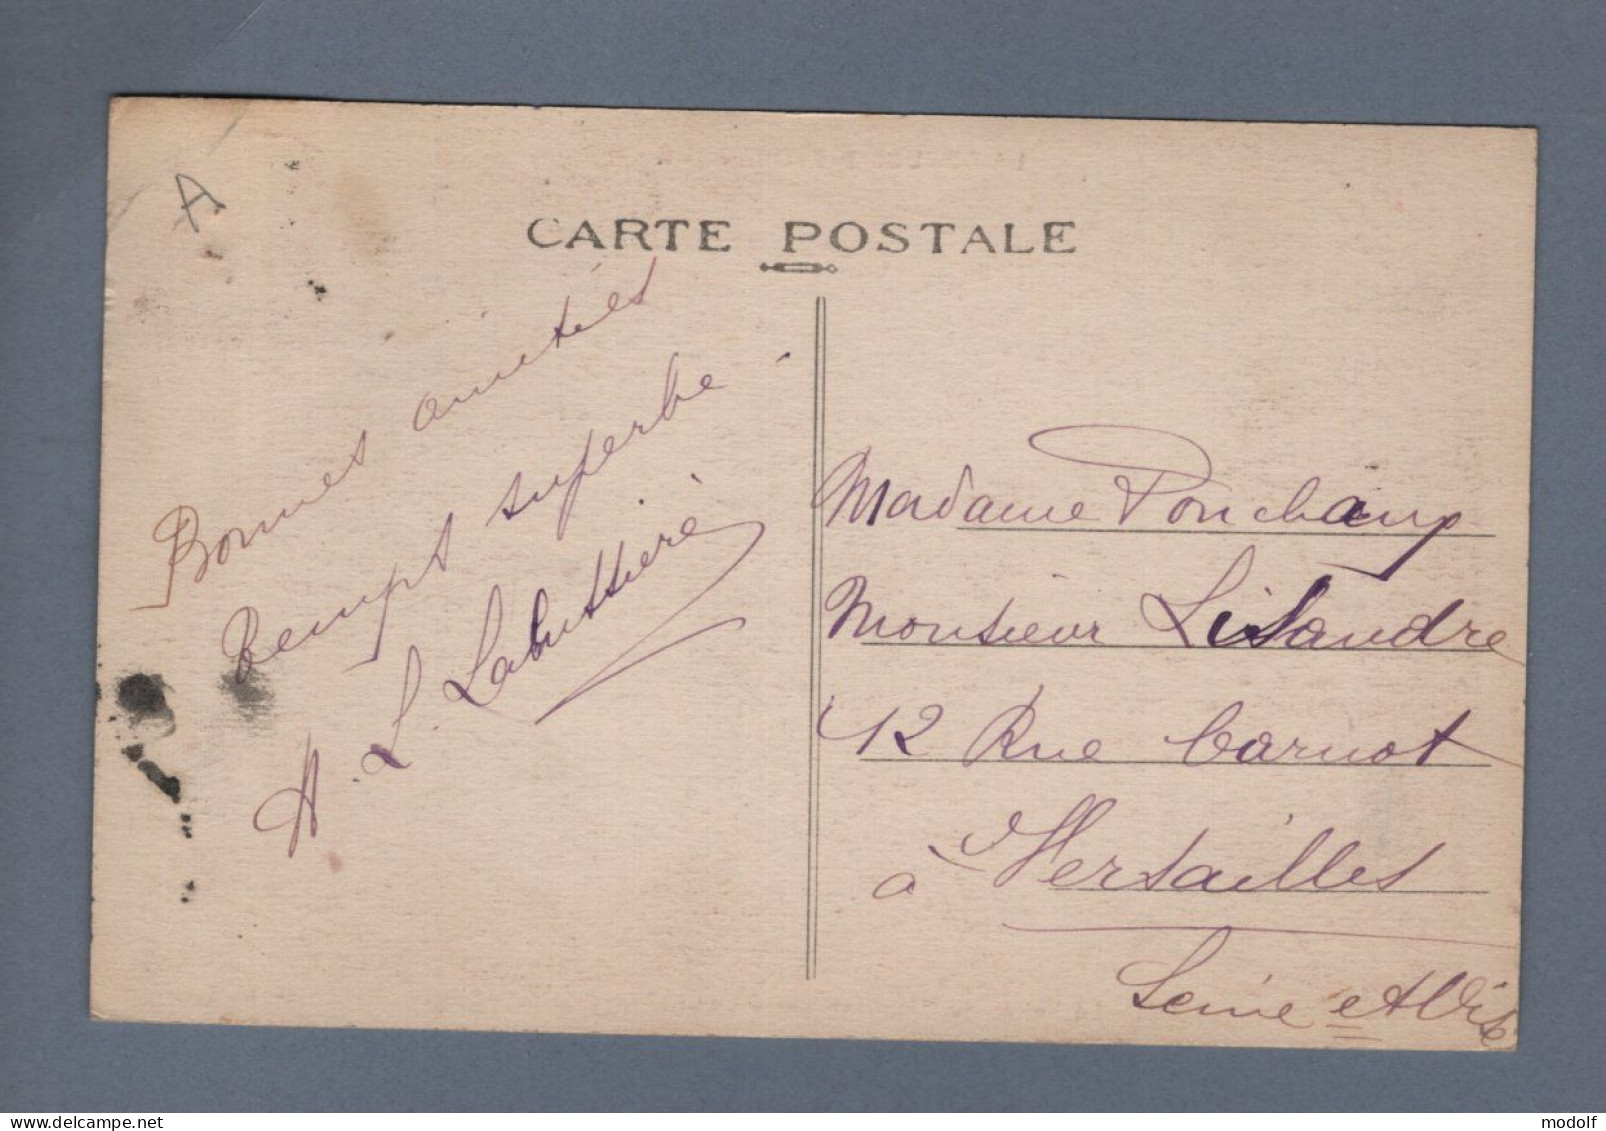 A
CARTE POSTALE
Bonnes amitiés
Tempt superbe
A. L. Labussière
Madame Ponchamp
Monsieur Lisandre
12 Rue Carnot
à Versailles
Seine et Oise
delcampe.net
modolf